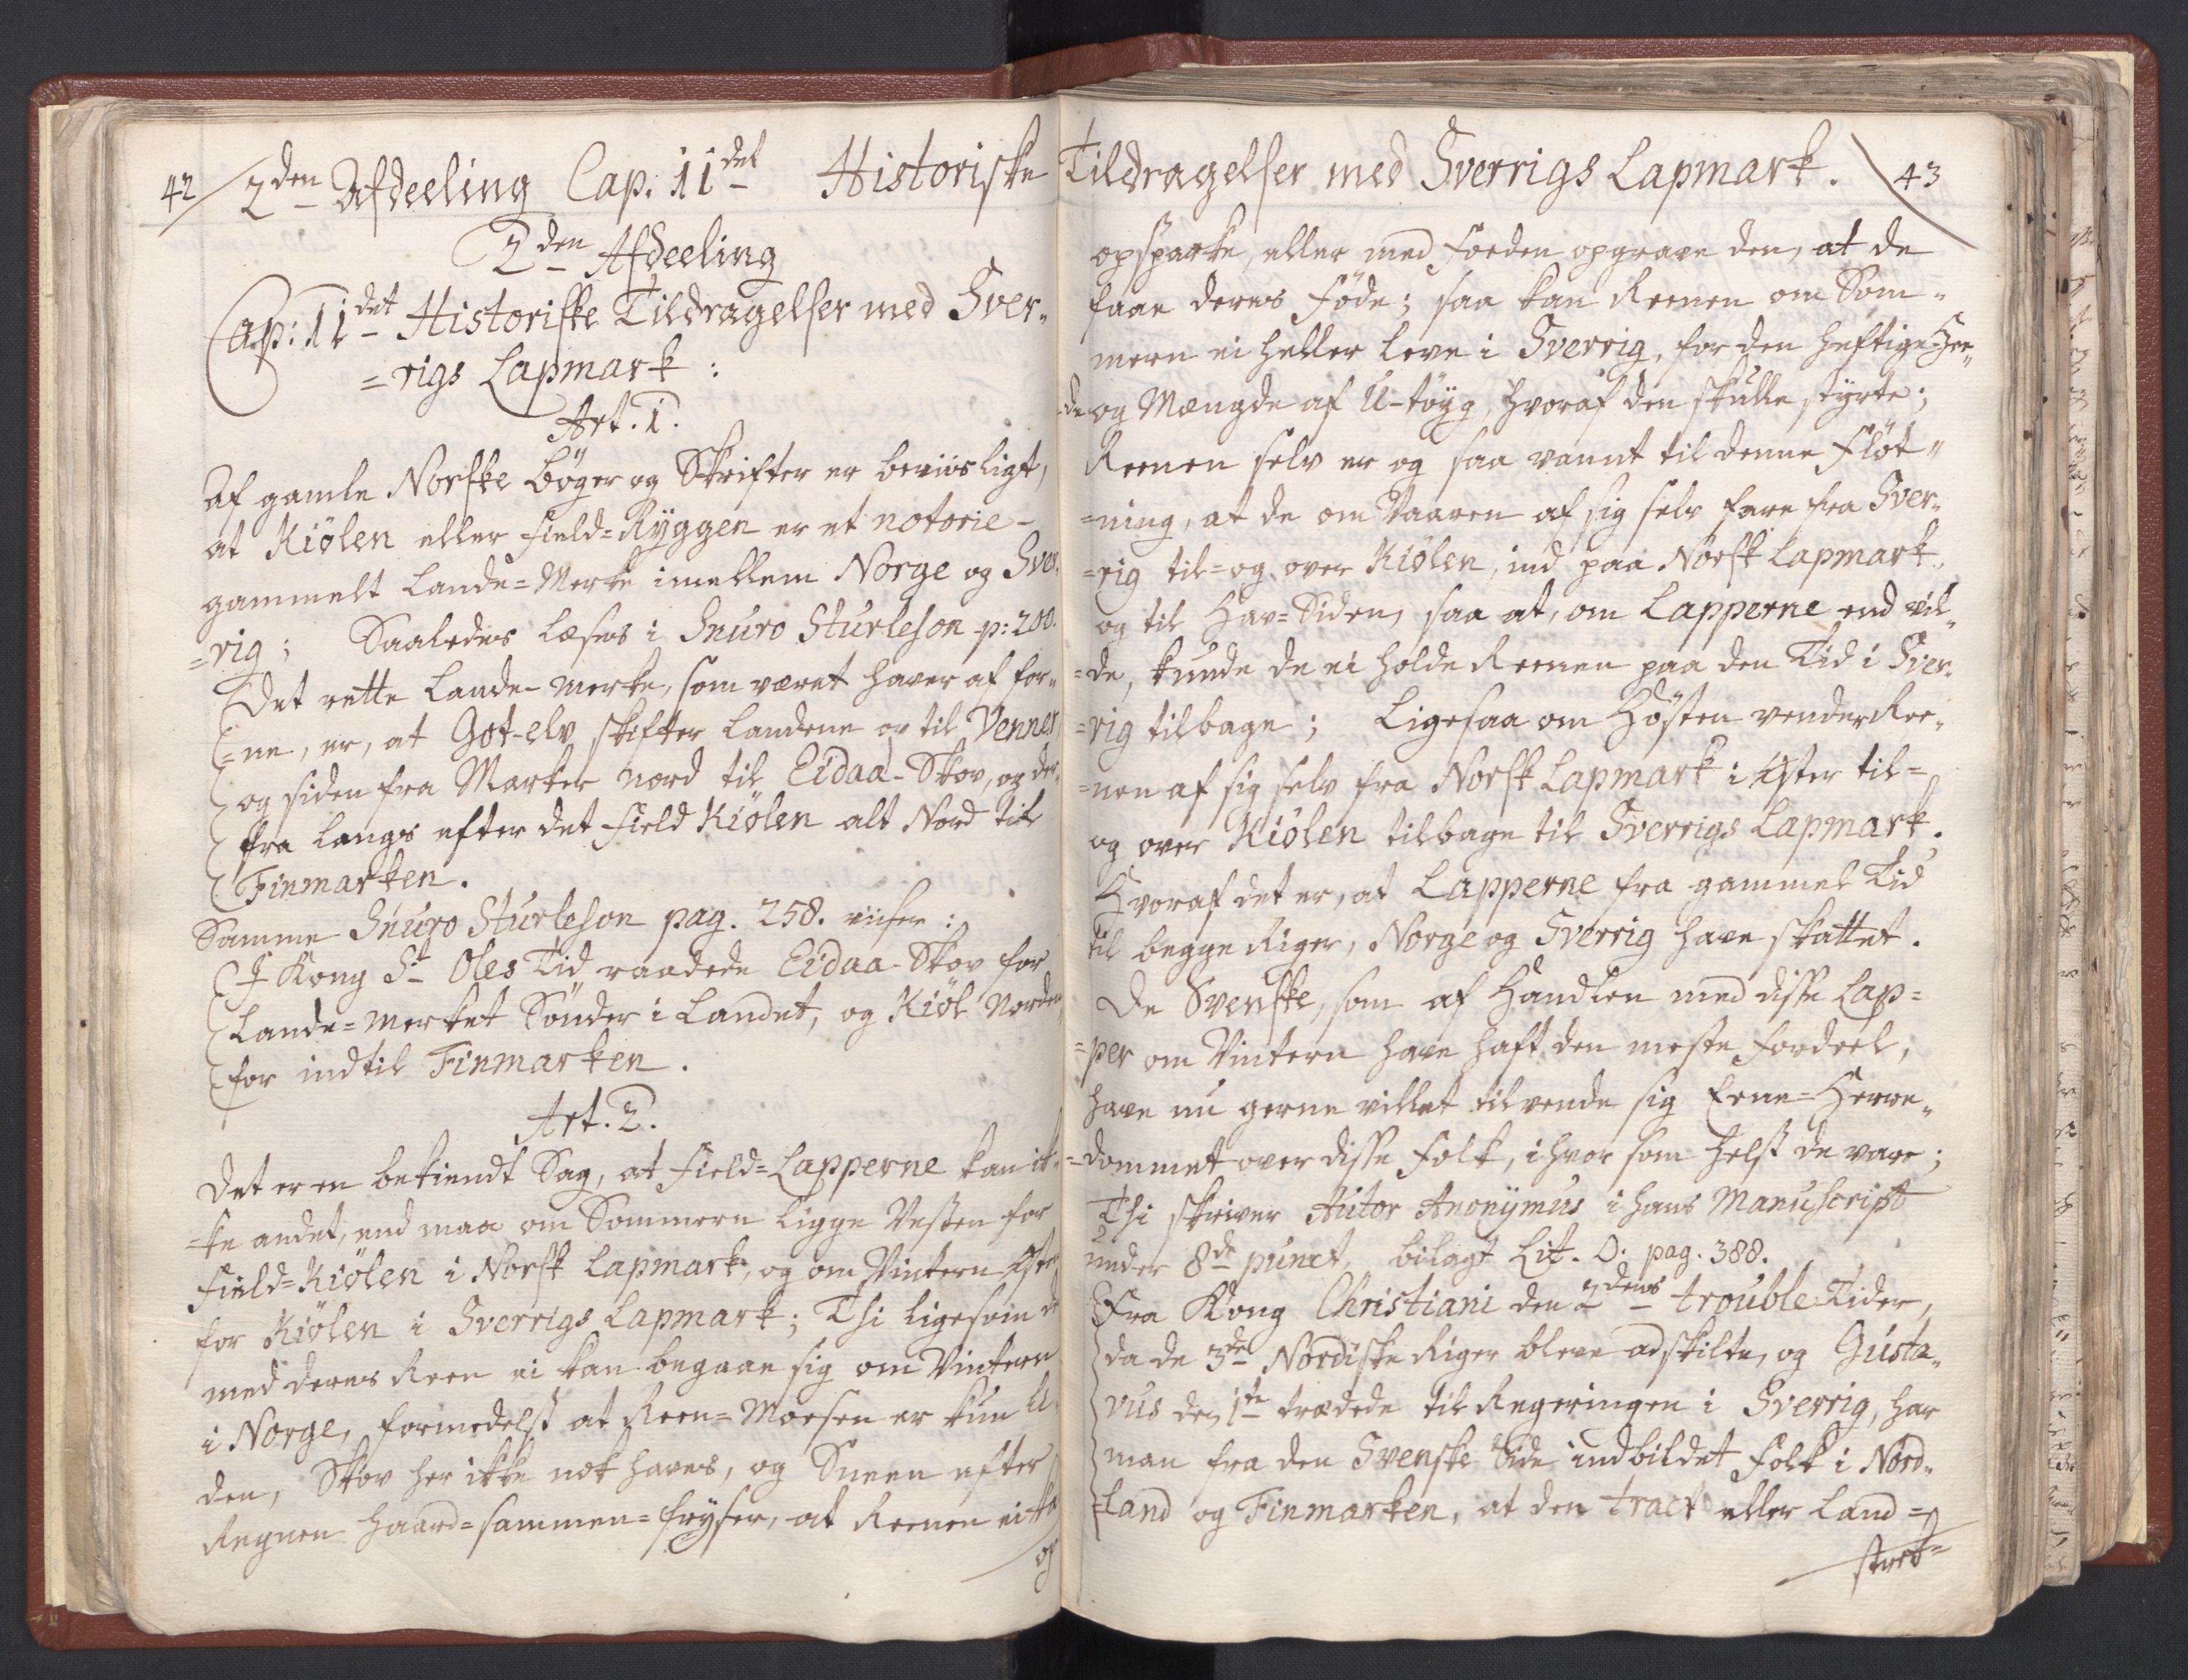 42 2den Afdeeling Cap. 11det Historiske
2den Afdeeling
Cap: 11det Historiske Tildragelser med Sver„
=rigs Lapmark:
Art. 1.
Af gamle Norske bøger og Skrifter er beviisligt,
at Kiølen eller field=Ryggen er et notorie-
gammelt Lande=Merke imellem Norge og Sver„
=rig; Saaledes læses i Snuro Sturleson p: 200.
Det rette Lande-Merke, som været haver af for„
=ne, er, at Got-elv skifter Landene op til Venner
og siden fra Marker nord til Eidaa-Skov, og der„
fra langs efter det field Kiölen alt Nord til
Finmarken.
Samme Snuro Sturleson pag. 258. viiser:
I Kong St Oles Tid raadede Eidaa-Skov for
Lande=Merket Sönder i Landet, og Kiöl Norden
for indtil Finmarken.
Art. 2.
Det er en bekiendt Sag, at field=Lapperne kan ik„
=ke andet, end maa om Sommeren ligge Vesten for
field=Kiölen i Norsk Lapmark, og om Vinteren Øster
for Kiölen i Sverrigs Lapmark; Thi ligesom de
med deres Reen ei kan begaae sig om Vinteren
i Norge, formedelst at Reen=Moesen er kun li„
den, Skov her ikke nok haves, og Sneen efter
Regnen haard=sammen=fryser, at Reenen ei kan
op
Tildragelser med Sverrigs Lapmark. 43
opsparke, eller med foeden opgrave den, at de
faae deres Føde; saa kan Reenen om Som„
meren ei heller leve i Sverrig, for den heftige Hee„
=de og Mængde af U-töyg, hvoraf den skulle styrte;
Reenen selv er og saa vannt til denne Fløt„
=ning, at de om Vaaren af sig selv fare fra Sver„
=rig til=og over Kiölen, ind paa Norsk Lapmark,
og til Hav=Siden, saa at, om Lapperne end vil„
=de, kunde de ei holde Reenen paa den Tid i Sver„
=rig tilbage; Ligesaa om Hösten vender Ree„
=nen af sig selv fra Norsk Lapmark i Øster til=
og over Kiölen tilbage til Sverrigs Lapmark.
Hvoraf det er, at Lapperne fra gammel Tid
til begge Riger, Norge og Sverrig have skattet.
De Svenske, som af Handlen med disse Lap=
=per om Vinteren have haft den meste fordeel,
have nu gerne villet tilvende sig Eene=Herre„
=dommet over disse Folk, ihvor som helst de vare;
Thi skriver Autor Anonymus i hans Manuscript
under 8de punct, bilagt Lit. O. pag. 388.
Fra Kong Christiani den 2dens trouble Tider,
da de 3de Nordiske Riger bleve adskilte, og Gusta„
vus den 1te trædede til Regeringen i Sverrig, har
man fra den Svenske Side indbildet Folk i Nord„
=land og Finmarken, at den tract eller Land=
stræk=